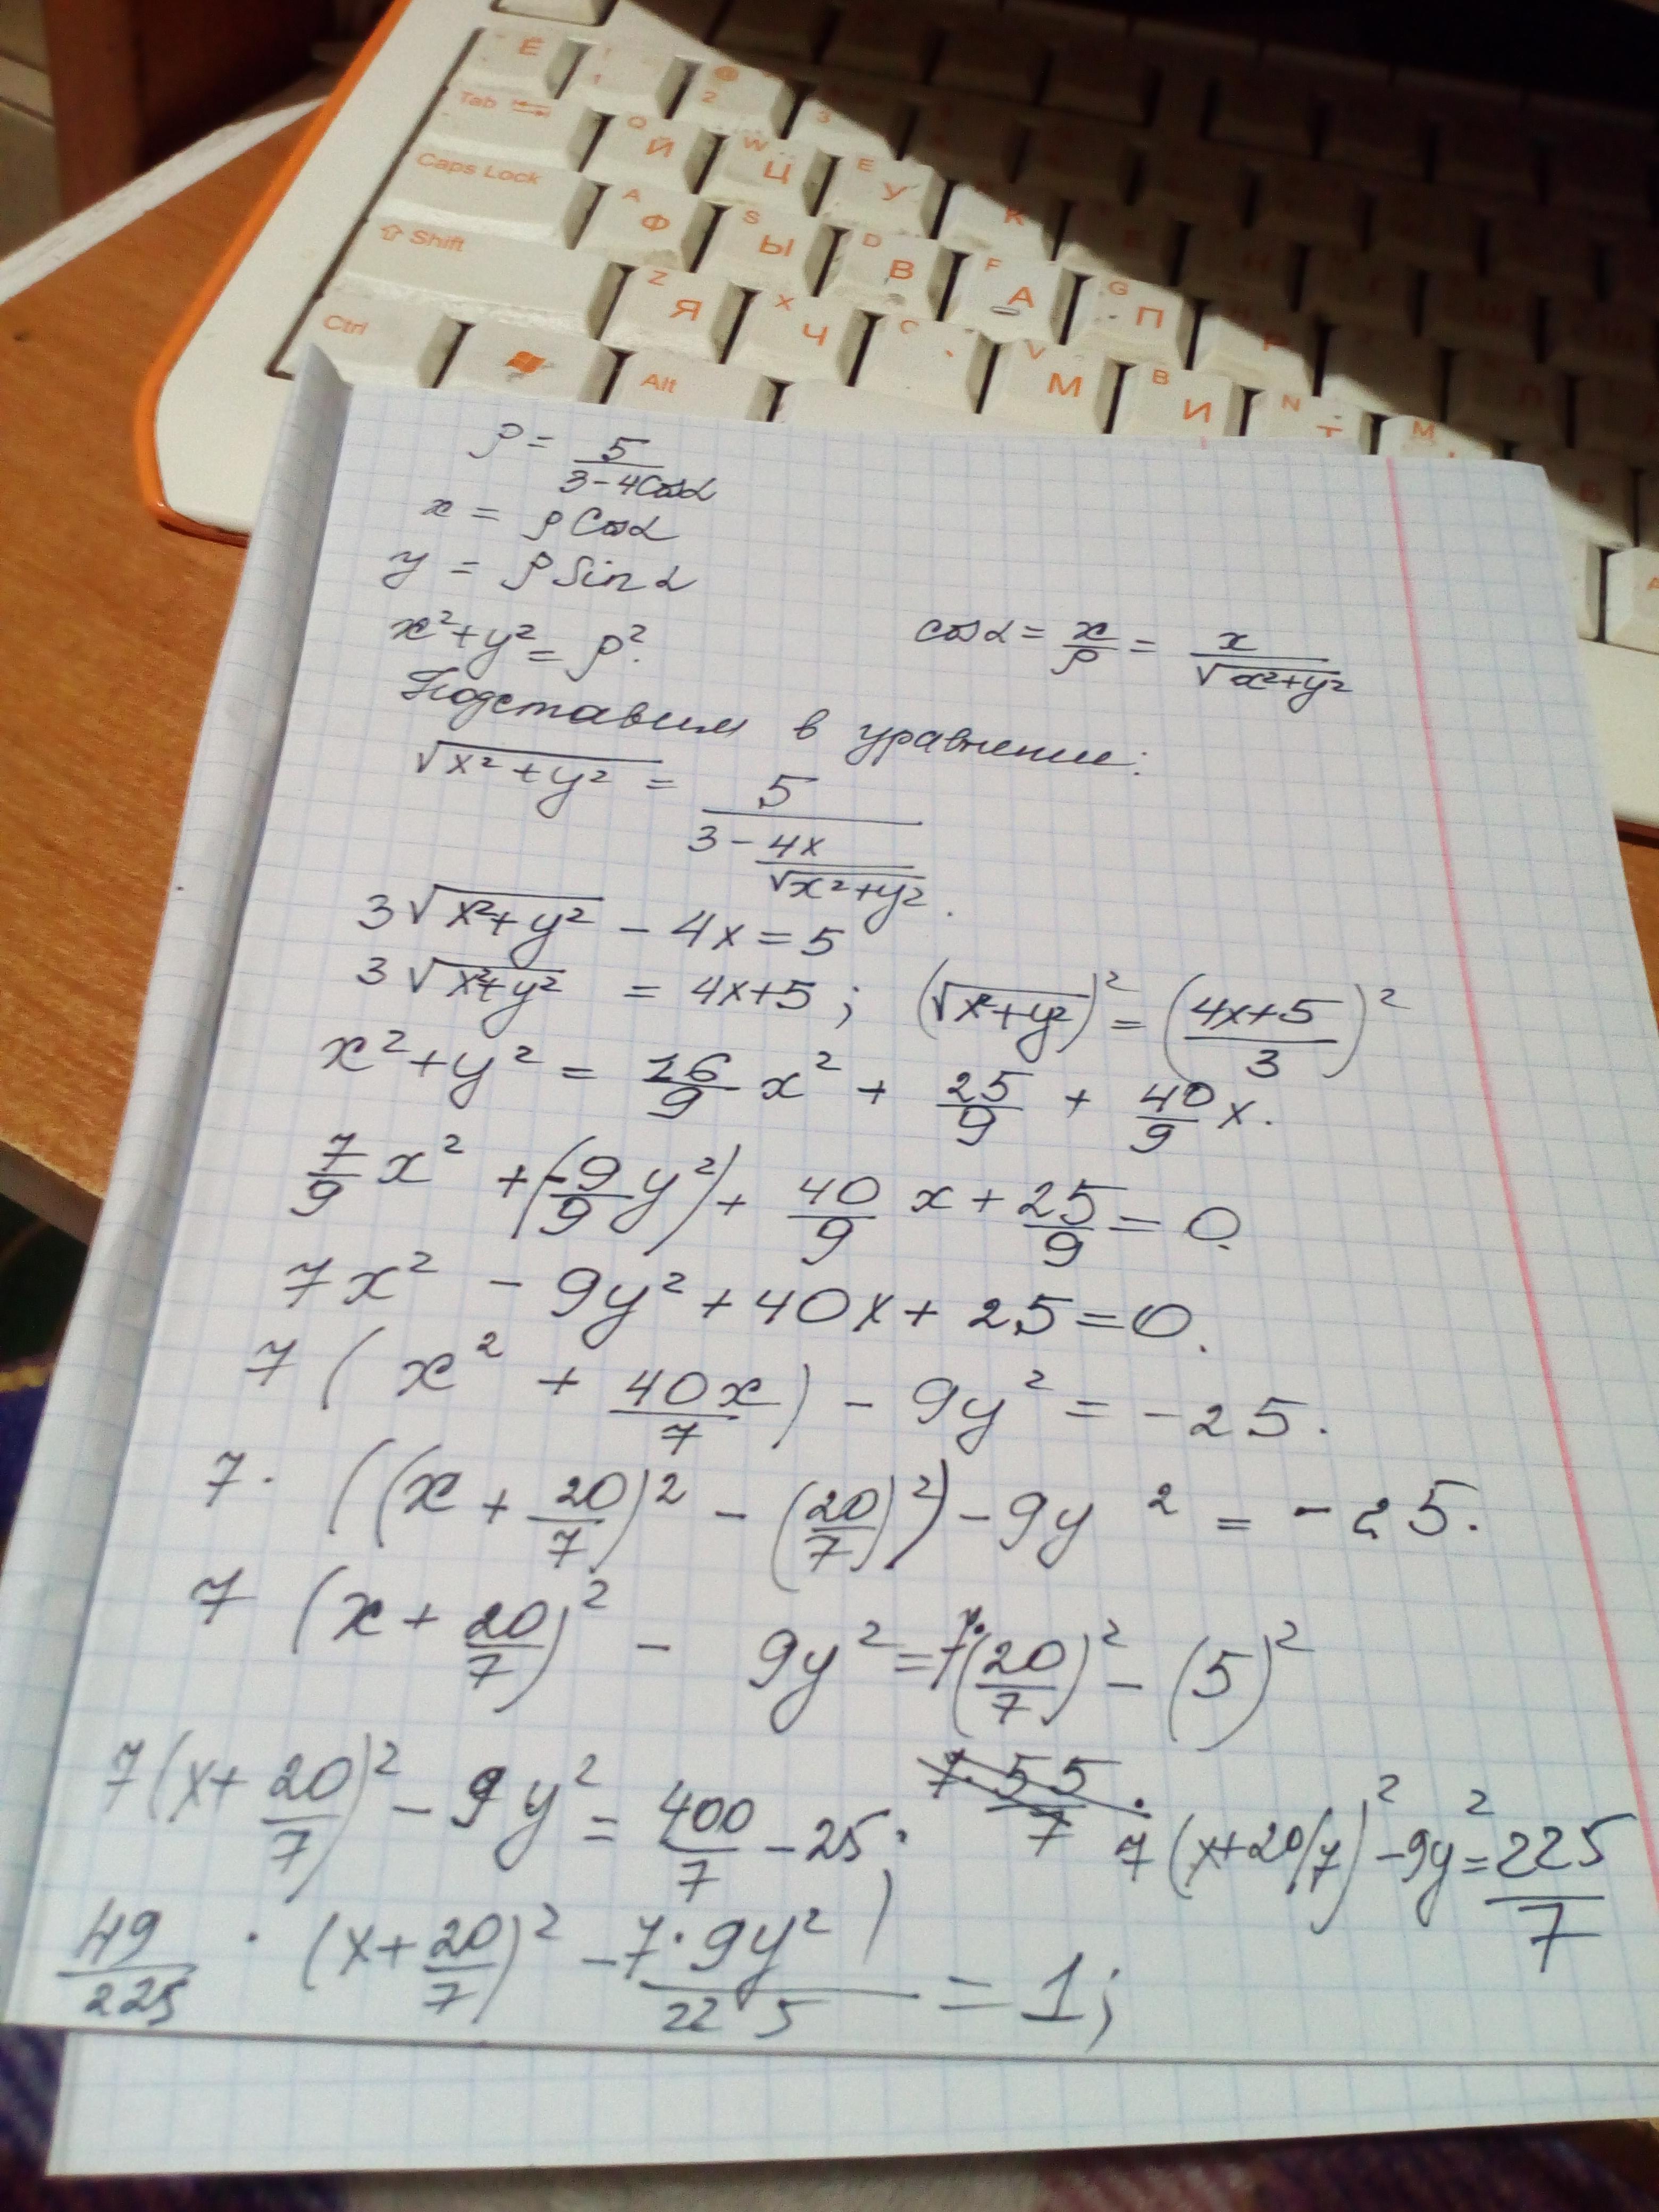 Ё ! 1 @ 2 3
Tab Q Й W Ц E У К
Caps Lock A Ф S Ы D В F А G П Р
Shift Z Я X Ч C V М B И N Т M
Ctrl Alt
ρ = 5/(3 - 4Cosα)
x = ρ Cosα
y = ρ Sinα
x² + y² = ρ². cosα = x/ρ = x/√(x²+y²)
Подставим в уравнение:
√(x² + y²) = 5/(3 - 4x/√(x²+y²)).
3√(x²+y²) - 4x = 5
3√(x²+y²) = 4x+5; (√(x²+y²))² = ((4x+5)/3)²
x² + y² = 16/9 x² + 25/9 + 40/9 x.
7/9 x² + (-9/9 y²) + 40/9 x + 25/9 = 0.
7x² - 9y² + 40x + 25 = 0.
7(x² + 40x/7) - 9y² = -25.
7·((x + 20/7)² - (20/7)²) - 9y² = -25.
7(x + 20/7)² - 9y² = 7·(20/7)² - (5)²
7(x + 20/7)² - 9y² = 400/7 - 25; 7·55/7. 7(x+20/7)² - 9y² = 225/7
49/225 · (x + 20/7)² - 7·9y²/225 = 1;